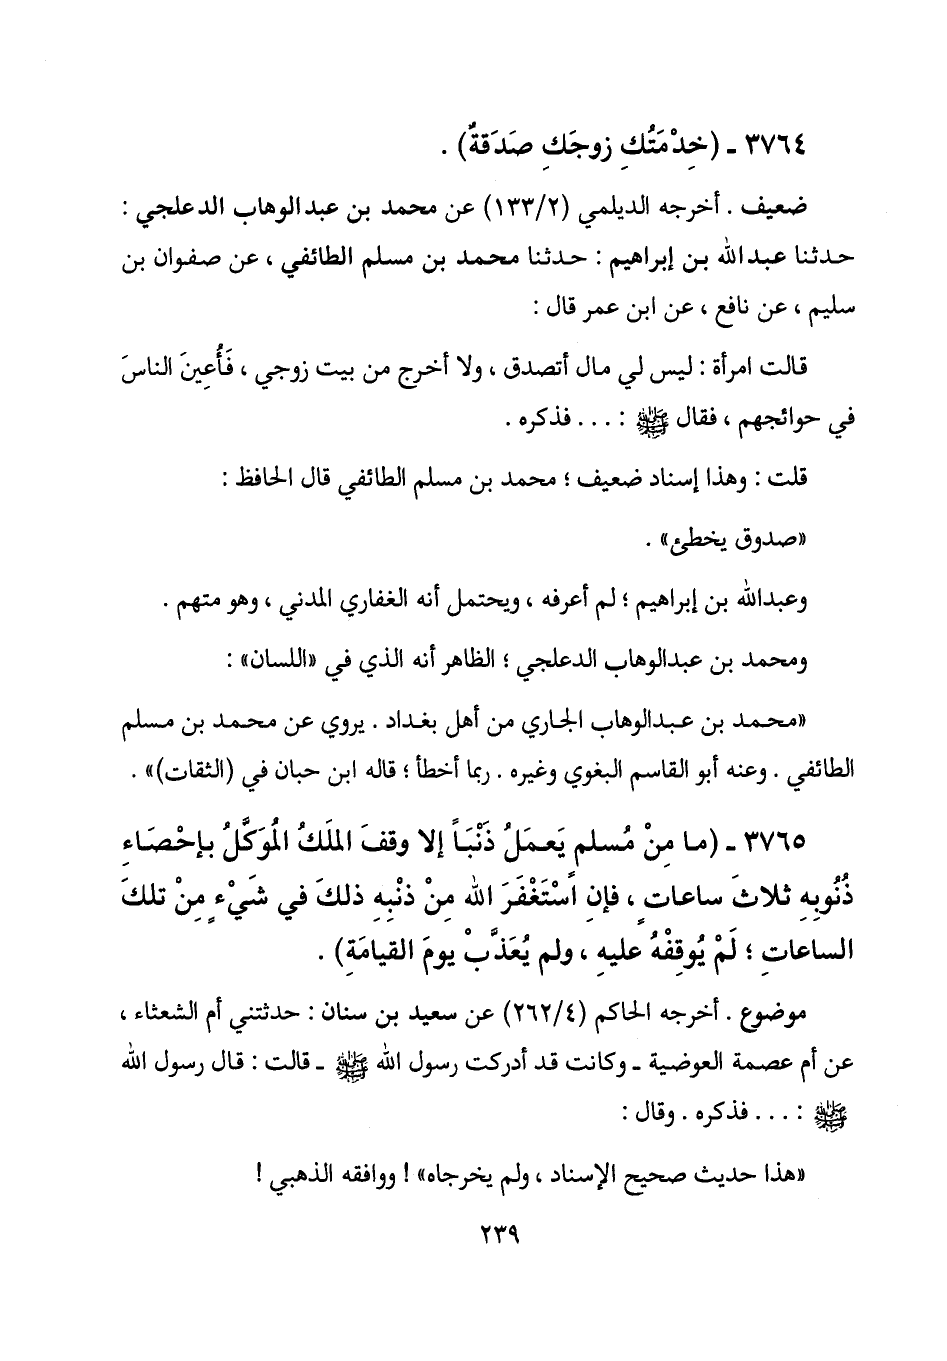 ٣٧٦٤ ـ (خِدْمَتُكِ زوجَكِ صَدَقةٌ) .
ضعيف . أخرجه الديلمي (١٣٣/٢) عن محمد بن عبدالوهاب الدعلجي :
حدثنا عبدالله بن إبراهيم : حدثنا محمد بن مسلم الطائفي ، عن صفوان بن
سليم ، عن نافع ، عن ابن عمر قال :
قالت امرأة : ليس لي مال أتصدق ، ولا أخرج من بيت زوجي ، فَأُعِينَ الناسَ
في حوائجهم ، فقال ﷺ : ... فذكره .
قلت : وهذا إسناد ضعيف ؛ محمد بن مسلم الطائفي قال الحافظ :
«صدوق يخطئ» .
وعبدالله بن إبراهيم ؛ لم أعرفه ، ويحتمل أنه الغفاري المدني ، وهو متهم .
ومحمد بن عبدالوهاب الدعلجي ؛ الظاهر أنه الذي في «اللسان» :
«محمد بن عبدالوهاب الجاري من أهل بغداد . يروي عن محمد بن مسلم
الطائفي . وعنه أبو القاسم البغوي وغيره . ربما أخطأ ؛ قاله ابن حبان في (الثقات)» .
٣٧٦٥ ـ (ما مِنْ مُسلمٍ يَعملُ ذَنْبَاً إلا وقفَ الملَكُ الُموَكَّلُ بإحْصَاءِ
ذُنُوبِهِ ثلاثَ ساعاتٍ ، فإنِ اسْتَغْفَرَ الله مِنْ ذنْبِهِ ذلكَ في شَيْءٍ مِنْ تلكَ
الساعاتِ ؛ لَمْ يُوقِفْهُ عليهِ ، ولم يُعَذَّبْ يومَ القيامَةِ) .
موضوع . أخرجه الحاكم (٢٦٢/٤) عن سعيد بن سنان : حدثتني أم الشعثاء ،
عن أم عصمة العوضية ـ وكانت قد أدركت رسول الله ﷺ ـ قالت : قال رسول الله
ﷺ : ... فذكره . وقال :
«هذا حديث صحيح الإسناد ، ولم يخرجاه» ! ووافقه الذهبي !
٢٣٩